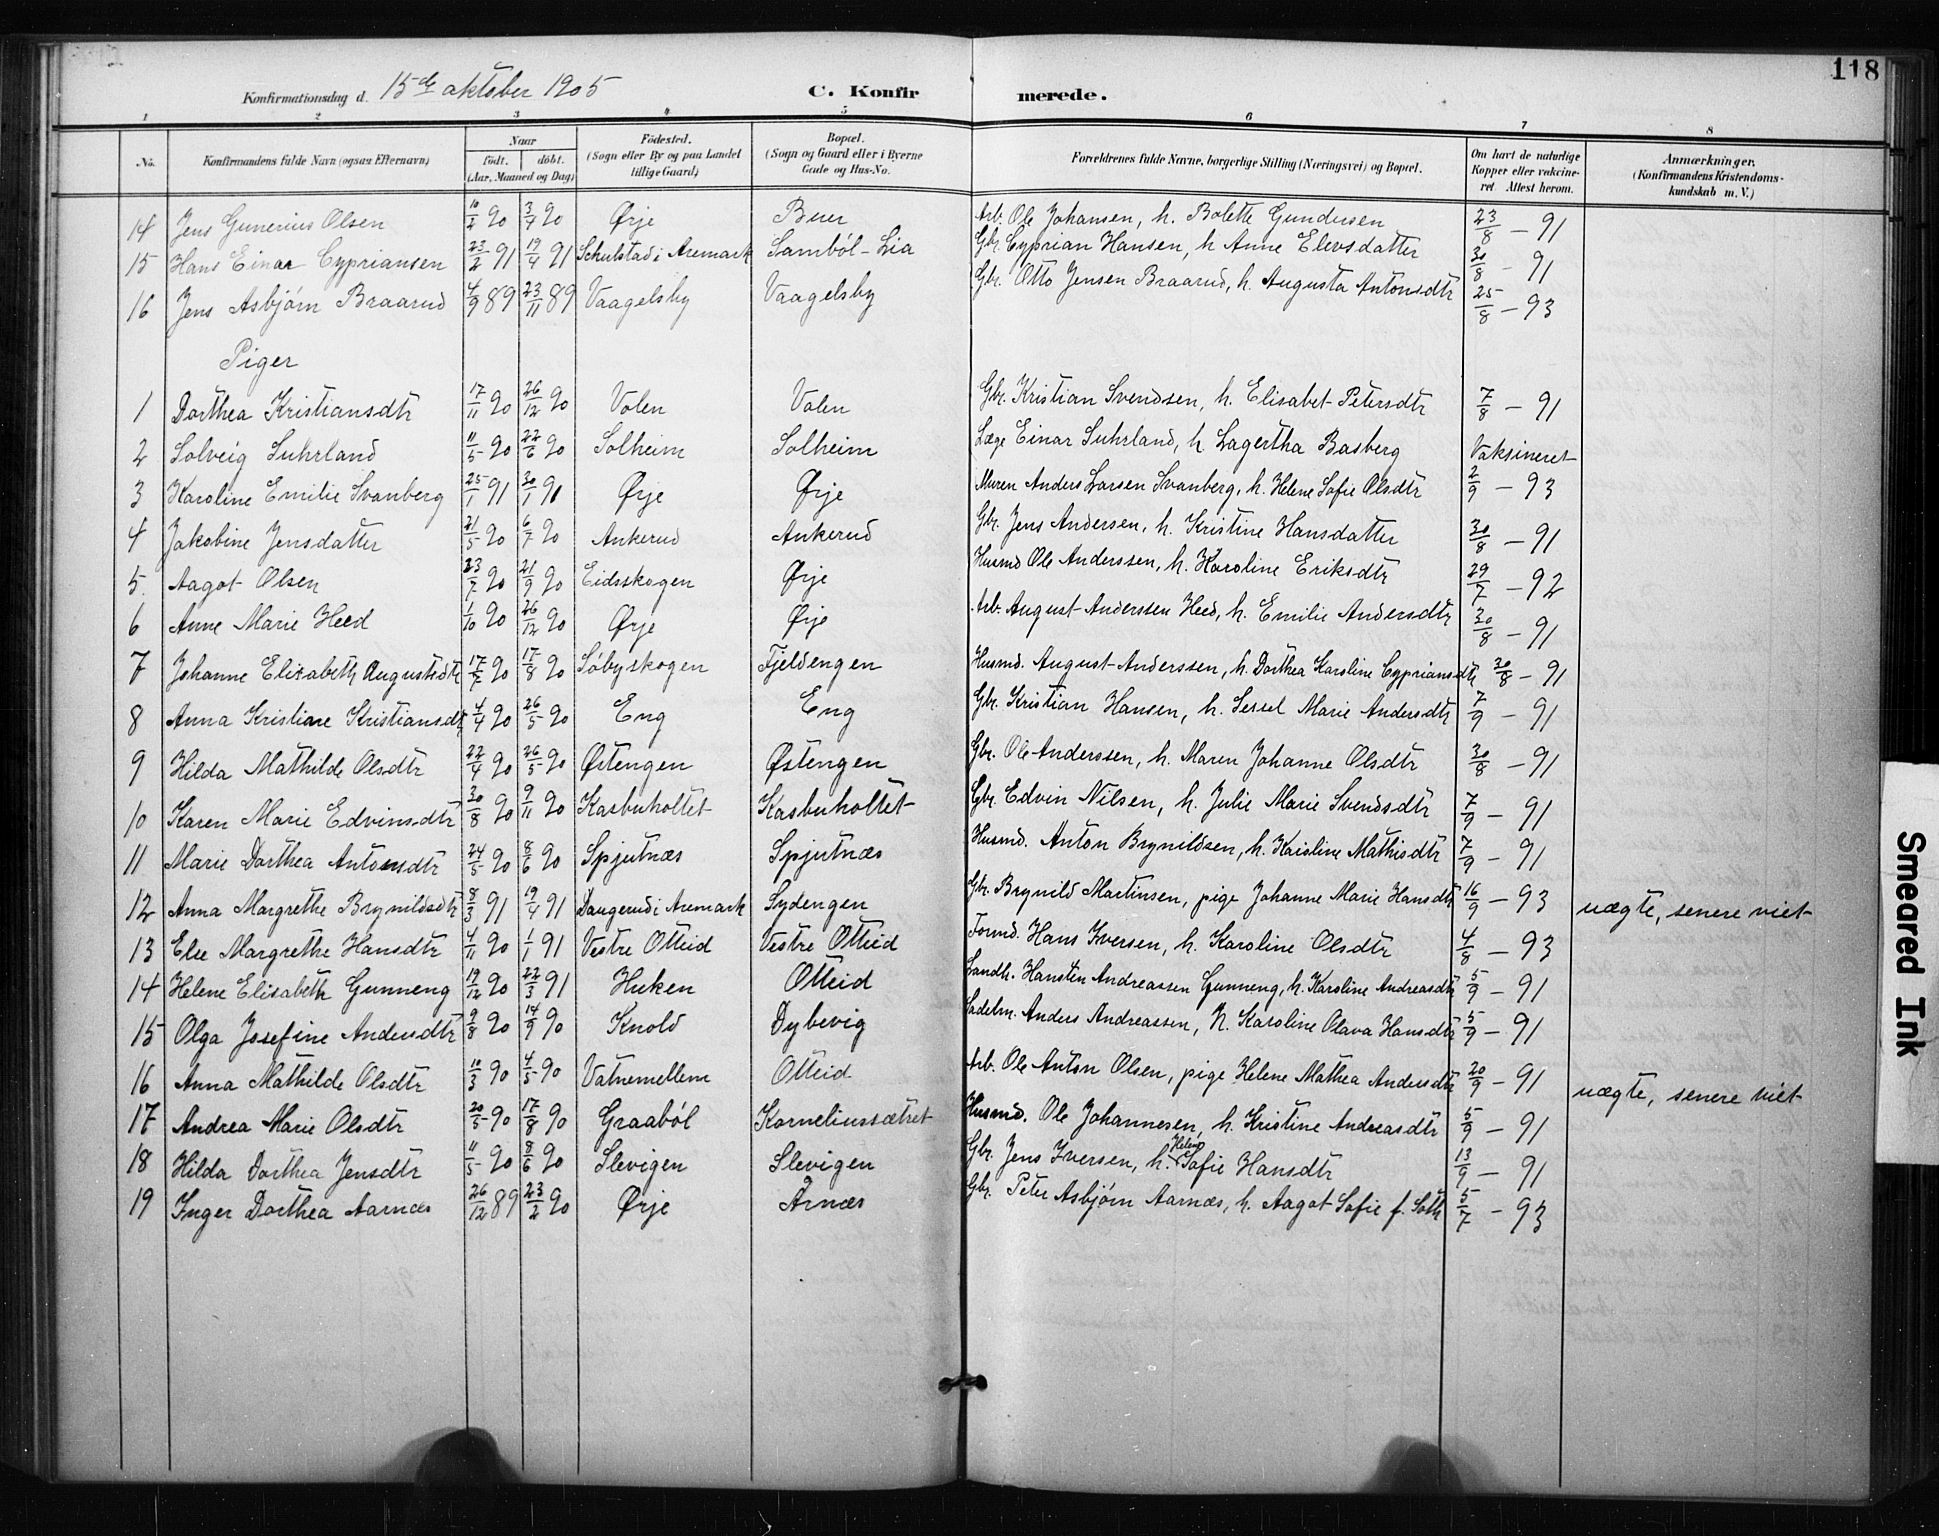 118
Konfirmationsdag d. 15de oktober 1905 C. Konfirmerede.
1 2 3 4 5 6 7 8
No. Konfirmandens fulde Navn (ogsaa Efternavn) Naar födt. döbt. (Aar, Maaned og Dag) Födested. (Sogn eller By og paa Landet tillige Gaard) Bopæl. (Sogn og Gaard eller i Byerne Gade og Hus-No. Forældrenes fulde Navne, borgerlige Stilling (Næringsvei) og Bopæl. Om havt de naturlige Kopper eller vakcineret Attest herom. Anmærkninger. (Konfirmandens Kristendomskundskab m. V.)
14 Jens Gunerius Olsen 10/2 90 3/4 90 Ørje Buer Arb. Ole Johansen, h. Bolette Gundersen 23/8 – 91
15 Hans Einar Cypriansen 23/2 91 19/4 91 Schulstad i Aremark Samból-Lia Gbr. Cyprian Hansen, h Anne Elevsdatter 30/8 – 91
16 Jens Asbjórn Braarud 4/9 89 23/11 89 Vaagelsby Vaagelsby Gbr. Otto Jensen Braarud, h. Augusta Antonsdtr 25/8 – 93
Piger
1 Dorthea Kristiansdtr 17/11 90 26/12 90 Volen Volen Gbr. Kristian Svendsen, h. Elisabet Petersdtr 7/8 – 91
2 Solveig Suhrland 11/5 90 22/6 90 Solheim Solheim Læge Einar Suhrland, h Lagertha Basberg Vaksineret
3 Karoline Emilie Svanberg 25/1 91 30/1 91 Ørje Ørje Muren Anders Larsen Svanberg, h. Helene Sofie Olsdtr 2/9 – 93
4 Jakobine Jensdatter 21/5 90 6/7 90 Ankerud Ankerud Gbr. Jens Andersen, h. Kristine Hansdatter 30/8 – 91
5. Aagot Olsen 23/7 90 21/9 90 Eidsskogen Ørje Husmd Ole Anderssen, h. Karoline Eriksdtr 29/7 – 92
6 Anne Marie Heed 1/10 90 26/12 90 Ørje Ørje Arb. August Anderssen Heed, h. Emilie Andersdtr 30/8 – 91
7 Johanne Elisabeth Augustsdtr 17/7 90 17/8 90 Sóbyskogen Fjeldengen Husmd. August Anderssen, h. Dorthea Karoline Cypriansdtr 30/8 – 91
8 Anna Kristiane Kristiansdtr 4/4 90 26/5 90 Eng Eng Gbr. Kristian Hansen, h. Sersel Marie Andersdtr 7/9 – 91
9 Hilda Mathilde Olsdtr 22/4 90 26/5 90 Østengen Østengen Gbr. Ole Anderssen, h. Maren Johanne Olsdtr 30/8 – 91
10 Karen Marie Edvinsdtr 30/8 90 9/11 90 Kasbuholtet Kasbuholtet Gbr. Edvin Nilsen, h. Julie Marie Svendsdtr 7/9 – 91
11 Marie Dorthea Antonsdtr 24/5 90 8/6 90 Spjutnæs Spjutnæs Husmd. Anton Brynildsen, h. Kaisline Mathisdtr 7/9 – 91
12 Anna Margrethe Brynildsdtr 8/3 91 19/4 91 Daugerud i Aremark Sydengen Gbr. Brynild Martinsen, pige Johanne Marie Hansdtr 16/9 – 93 uægte, senere viet
13 Elee Margrethe Hansdtr 4/11 90 1/1 91 Vestre Otteid Vestre Otteid Formd. Hans Iversen, h. Karoline Olsdtr 4/8 – 93
14 Helene Elisabeth Gunneng 19/12 90 22/3 91 Huken Otteid Landh. Hansten Andreassen Gunneng, h. Karoline Andreasdtr 5/9 – 91
15 Olga Josefine Andersdtr 9/8 90 14/9 90 Knold Dybevig Sadelm. Anders Andreassen, h. Karoline Olava Hansdtr 5/9 – 91
16 Anna Mathilde Olsdtr 10/3 90 4/5 90 Vatnemellem Otteid Arb. Ole Anton Olsen, pige Helene Mathea Andersdtr 20/9 – 91 uægte, senere viet
17 Andrea Marie Olsdtr 20/5 90 17/8 90 Graaból Korneliussætret Husmd. Ole Johannesen, h. Kristine Andreasdtr 5/9 – 91
18 Hilda Dorthea Jensdtr 11/5 90 8/6 90 Slevigen Slevigen Gbr. Jens Iversen, h. Helene Sofie Hansdtr 13/9 – 91
19 Inger Dorthea Aarnæs 26/12 89 23/2 90 Ørje Årnæs Gbr. Peter Asbjórn Aarnæs, h. Aagot Sofie f. Sóth 5/7 – 93
Smeared Ink